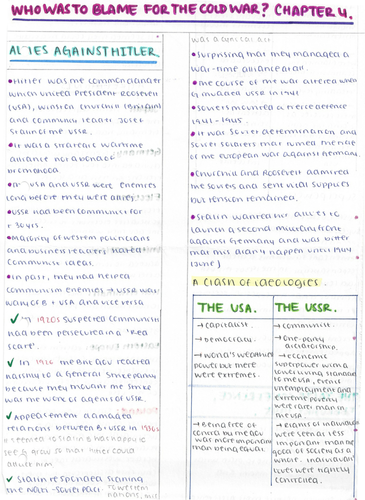 WHO WAS TO BLAME FOR THE COLD WAR? CHAPTER 4.
ALLIES AGAINST HITLER.
•Hitler was the common danger
which united President Roosevelt
(USA), Winston Churchill (Britain)
and communist leader Josef
Stalin of the USSR.
•It was a strategic wartime
alliance not a bond of
•The USA and USSR were enemies
long before they were allies.
•USSR had been communist for
30 yrs.
•Majority of western politicians
and business leaders hated
communist ideas.
•In past, they had helped
communism enemies → USSR was
wary of B + USA and vice versa
✓ 1920s suspected communists
had been persecuted in a 'Red
Scare'.
✓ In 1926 the Brit gov reacted
harshly to a general strike partly
because they thought the strike
was the work of agents of USSR.
✓ Appeasement damaged
relations between B + USSR in 1930s
it seemed to Stalin
grow so that Hitler could
attack him.
✓ Stalin responded signing
the Nazi-Soviet Pact.
•Surprising that they managed a
war-time alliance at all.
•The course of the war altered when
invaded USSR in 1941
•Soviets mounted a fierce defence
1941-1945.
•It was Soviet determination and
Soviet soldiers that turned the tide
of the European war against Germany.
•Churchill and Roosevelt admired
the Soviets and sent vital supplies
but tension remained.
•Stalin wanted his allies to
launch a second front
against Germany and was bitter
that this didn't happen until
(June)
A clash of ideologies.
THE USA.
→capitalist.
→democracy.
→world's wealthiest
power but there
were extremes.
→Being free of
control by the gov
was more important
than being equal.
THE USSR.
→communist.
→one-party
dictatorship.
→economic
superpower
to the USA, but
unemployment and
extreme poverty
were rarer than in
the USA.
→Rights of individuals
were seen as less
important than the
good of society as a
whole. individuals'
lives were tightly
controlled.